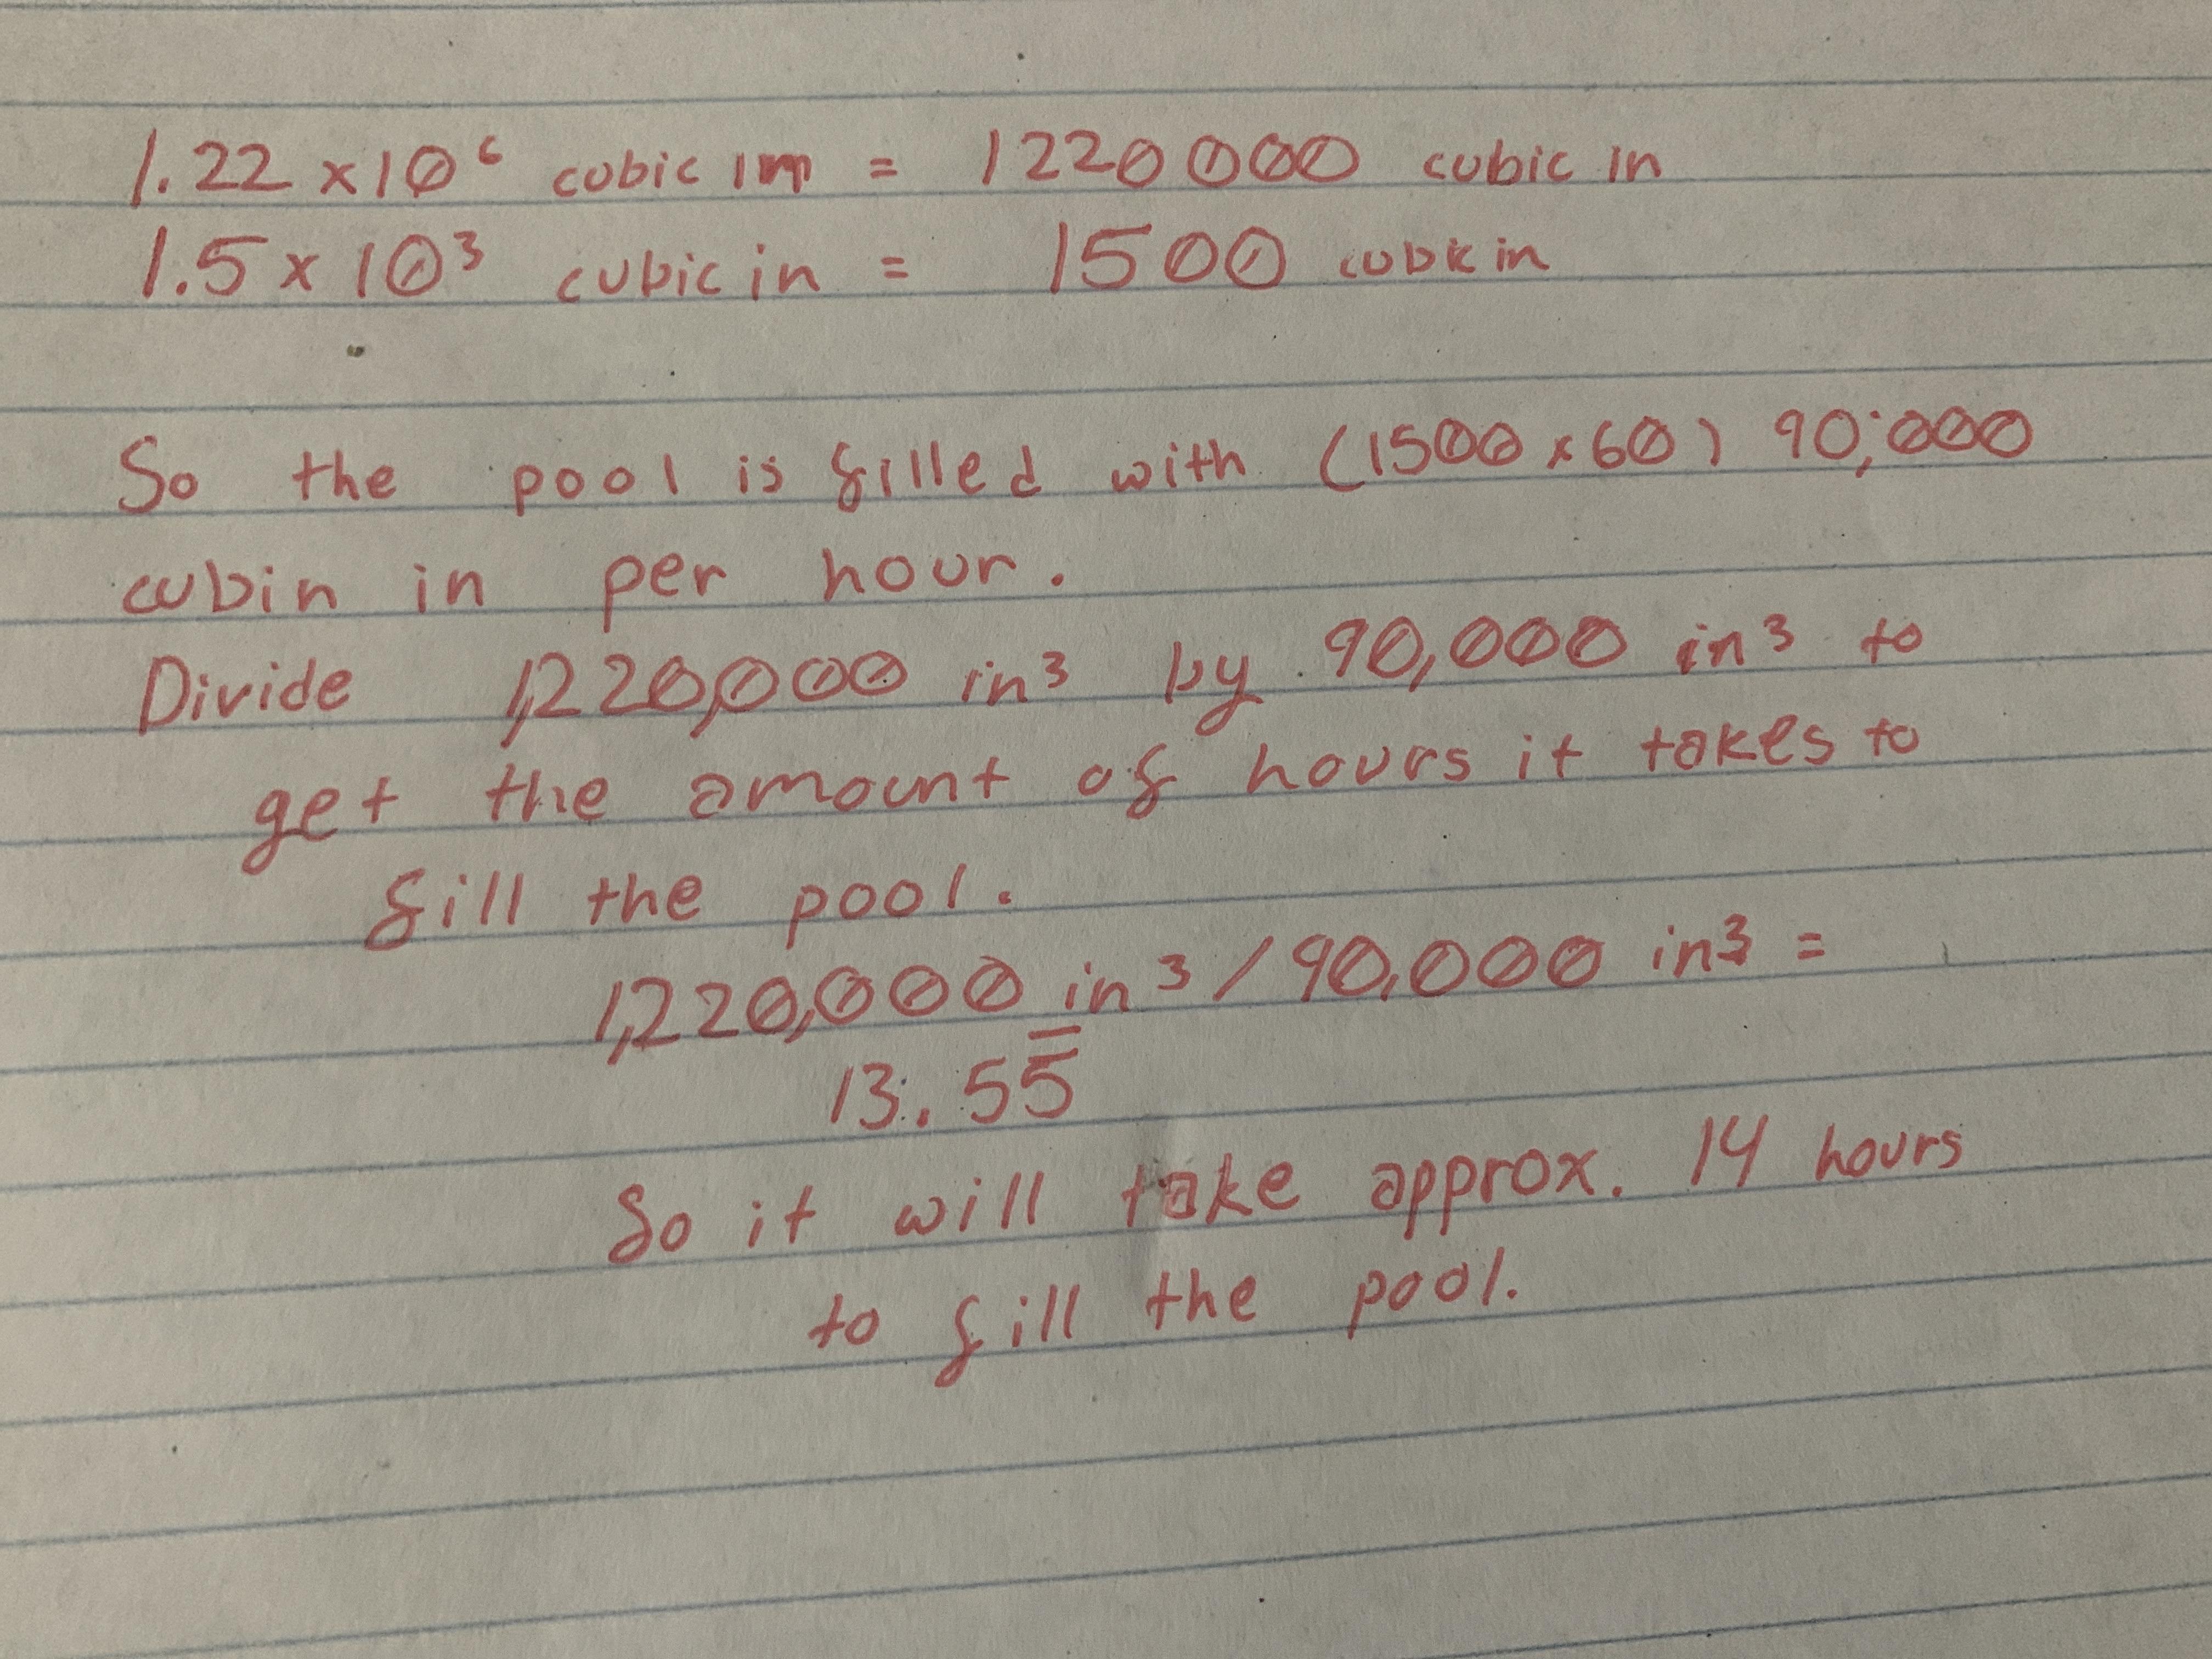 1.22 x 10⁶ cubic in = 1220000 cubic in
1.5 x 10³ cubic in = 1500 cubic in
So the pool is filled with (1500 x 60) 90,000
cubin in per hour.
Divide 1,220,000 in³ by 90,000 in³ to
get the amount of hours it takes to
fill the pool.
1,220,000 in³ / 90,000 in³ =
13.55̅
So it will take approx. 14 hours
to fill the pool.